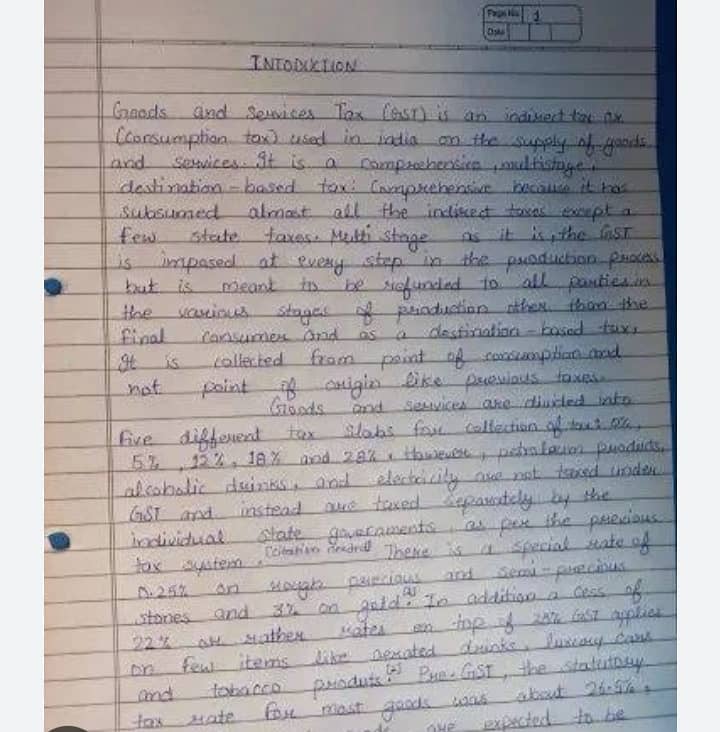 Page No. 1
Date
INTODUCTION
Goods and Services Tax (GST) is an indirect tax
(consumption tax) used in india on the supply of goods
and services. It is a comprehensive, multistage,
destination-based tax: Comprehensive because it has
subsumed almost all the indirect taxes except a
few state taxes. Multi stage as it is, the GST
is imposed at every step in the production process
but is meant to be refunded to all parties in
the various stages of production other than the
final consumer and as a destination-based tax,
It is collected from point of consumption and
not point of origin like previous taxes.
Goods and services are divided into
five different tax slabs for collection of tax: 0%,
5%, 12%, 18% and 28%. However, petroleum products,
alcoholic drinks, and electricity are not taxed under
GST and instead are taxed separately by the
individual state governments, as per the previous
tax system. [citation needed] There is a special rate of
0.25% on rough precious and semi-precious
stones and 3% on gold. In addition a cess of
22% or rather rates on top of 28% GST applies
on few items like aerated drinks, luxury cars
and tobacco produts. Pre-GST, the statutory
tax rate for most goods was about 26.5%,
are expected to be